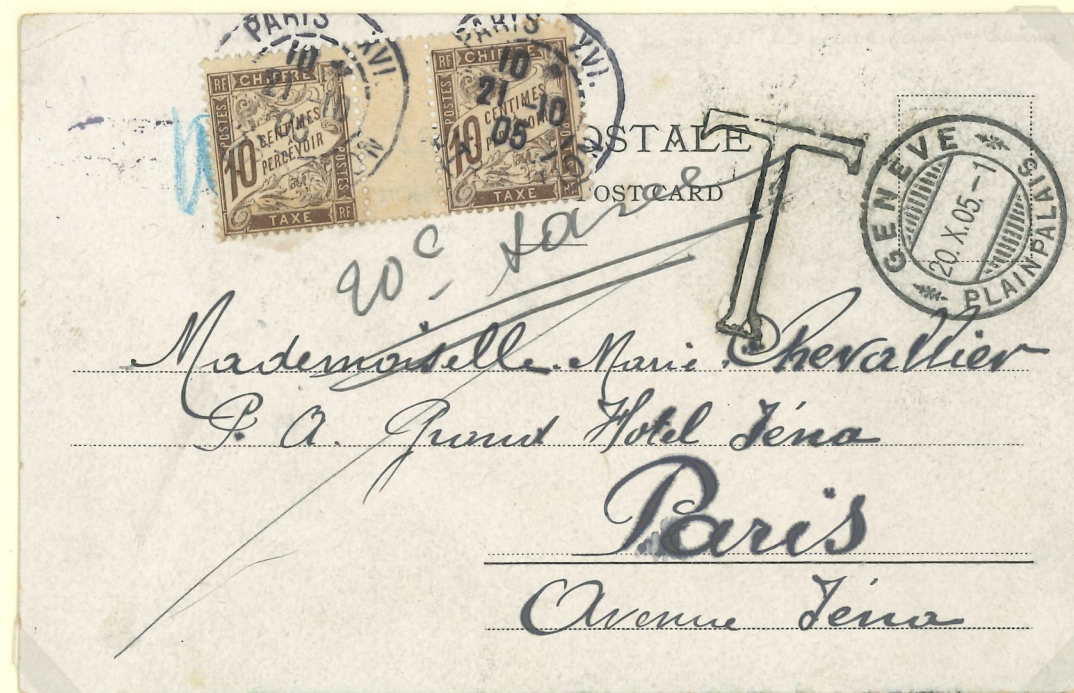 PARIS XVI
10
21 -10
PARIS XVI.
10
21 -10
05
RF CHIFFRE
POSTES
10 CENTIMES
À
PERCEVOIR
POSTES
TAXE RF
RF CHIFFRE
POSTES
10 CENTIMES
TAXE
OSTALE
POSTCARD
T
GENÈVE
20.X.05.-1
PLAINPALAIS
20c
Mademoiselle Marie Chevallier
P. A. Grand Hotel Iéna
Paris
Avenue Iéna